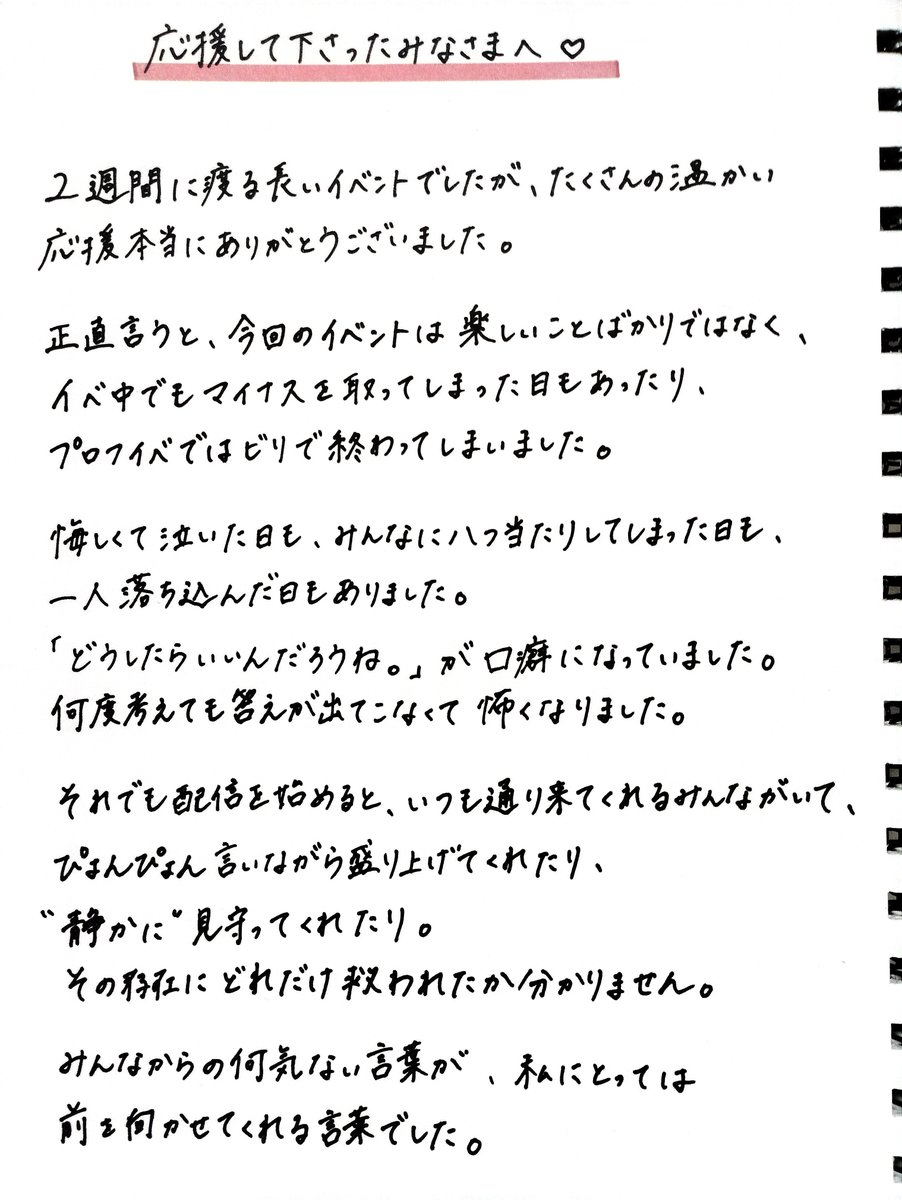 応援して下さったみなさまへ♡
2週間に渡る長いイベントでしたが、たくさんの温かい
応援本当にありがとうございました。
正直言うと、今回のイベントは楽しいことばかりではなく、
イベ中でもマイナスを取ってしまった日もあったり、
プロフイベではビリで終わってしまいました。
悔しくて泣いた日も、みんなに八つ当たりしてしまった日も、
一人落ち込んだ日もありました。
「どうしたらいいんだろうね。」が口癖になっていました。
何度考えても答えが出てこなくて怖くなりました。
それでも配信を始めると、いつも通り来てくれるみんながいて、
ぴょんぴょん言いながら盛り上げてくれたり、
"静かに"見守ってくれたり。
その存在にどれだけ救われたか分かりません。
みんなからの何気ない言葉が、私にとっては
前を向かせてくれる言葉でした。